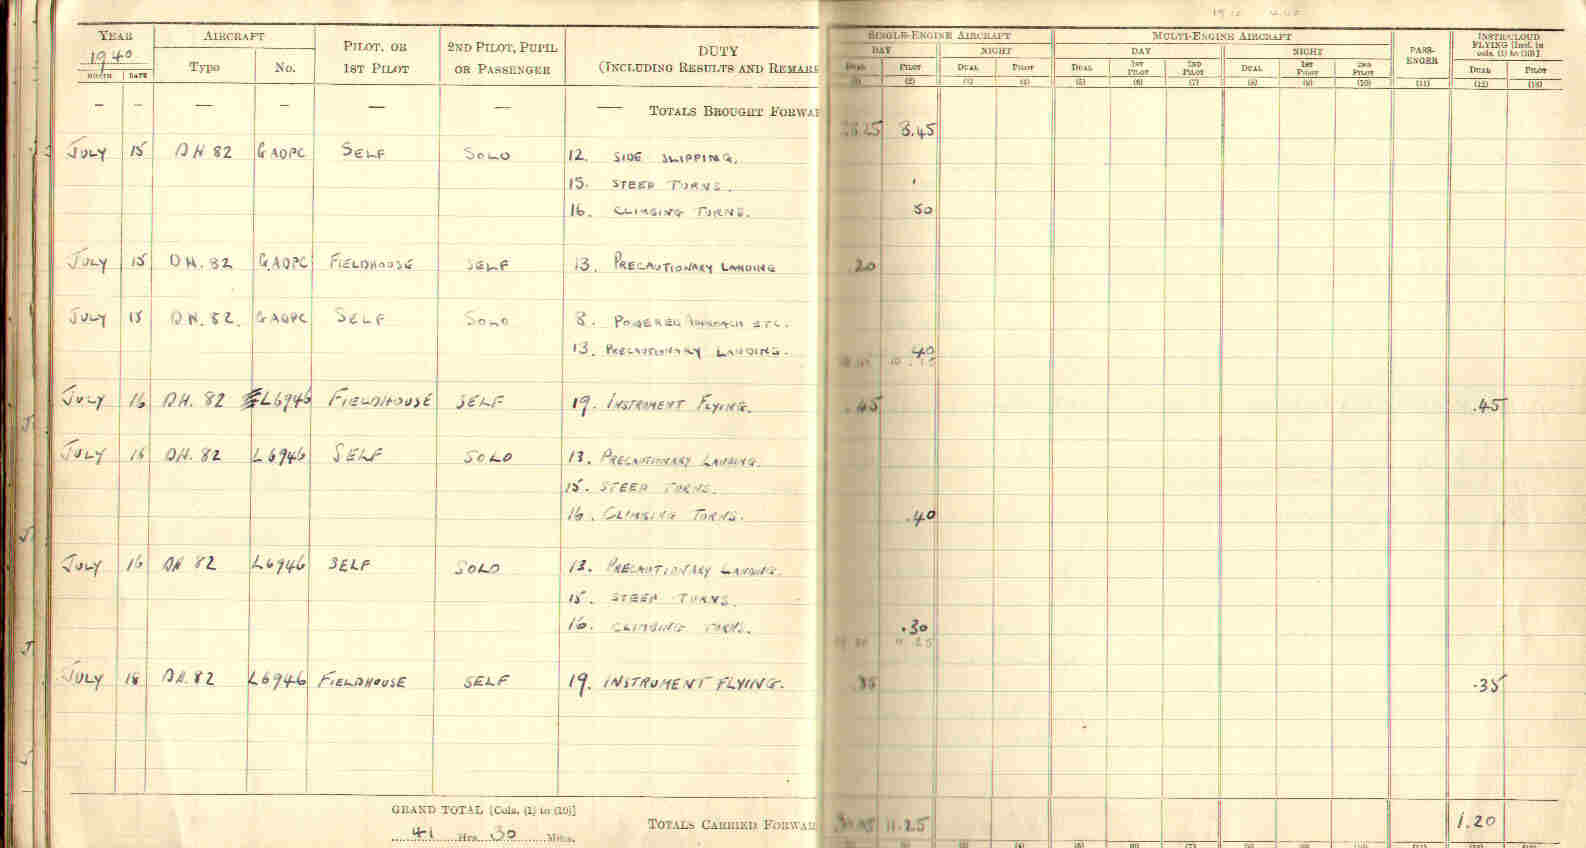 YEAR AIRCRAFT PILOT, OR 1ST PILOT 2ND PILOT, PUPIL OR PASSENGER DUTY (INCLUDING RESULTS AND REMAR SINGLE-ENGINE AIRCRAFT MULTI-ENGINE AIRCRAFT PASS-ENGER INSTR/CLOUD FLYING [Incl. in cols. (1) to (10)]
1940 Type No. DAY NIGHT DAY NIGHT
MONTH DATE DUAL PILOT DUAL PILOT DUAL 1ST PILOT 2ND PILOT DUAL 1ST PILOT 2ND PILOT DUAL PILOT
(1) (2) (3) (4) (5) (6) (7) (8) (9) (10) (11) (12) (13)
— — — — — — — TOTALS BROUGHT FORWA
3.45
JULY 15 DH 82 GADPC SELF SOLO 12. SIDE SLIPPING.
15. STEEP TURNS.
16. CLIMBING TURNS. 50
JULY 15 DH. 82 GADPC FIELDHOUSE SELF 13. PRECAUTIONARY LANDING .20
JULY 15 DH. 82. GADPC SELF SOLO 8. POWERED APPROACH ETC.
13. PRECAUTIONARY LANDING. 40
JULY 16 DH. 82 L6946 FIELDHOUSE SELF 19. INSTRUMENT FLYING. .45 .45
JULY 16 DH. 82 L6946 SELF SOLO 13. PRECAUTIONARY LANDING.
15. STEEP TURNS.
16. CLIMBING TURNS. .40
JULY 16 DH 82 L6946 SELF SOLO 13. PRECAUTIONARY LANDING.
15. STEEP TURNS.
16. CLIMBING TURNS. .30
JULY 18 DH. 82 L6946 FIELDHOUSE SELF 19. INSTRUMENT FLYING. .35 .35
GRAND TOTAL [Cols. (1) to (10)]
41 Hrs. 30 Mins. TOTALS CARRIED FORWAR 11.25 1.20